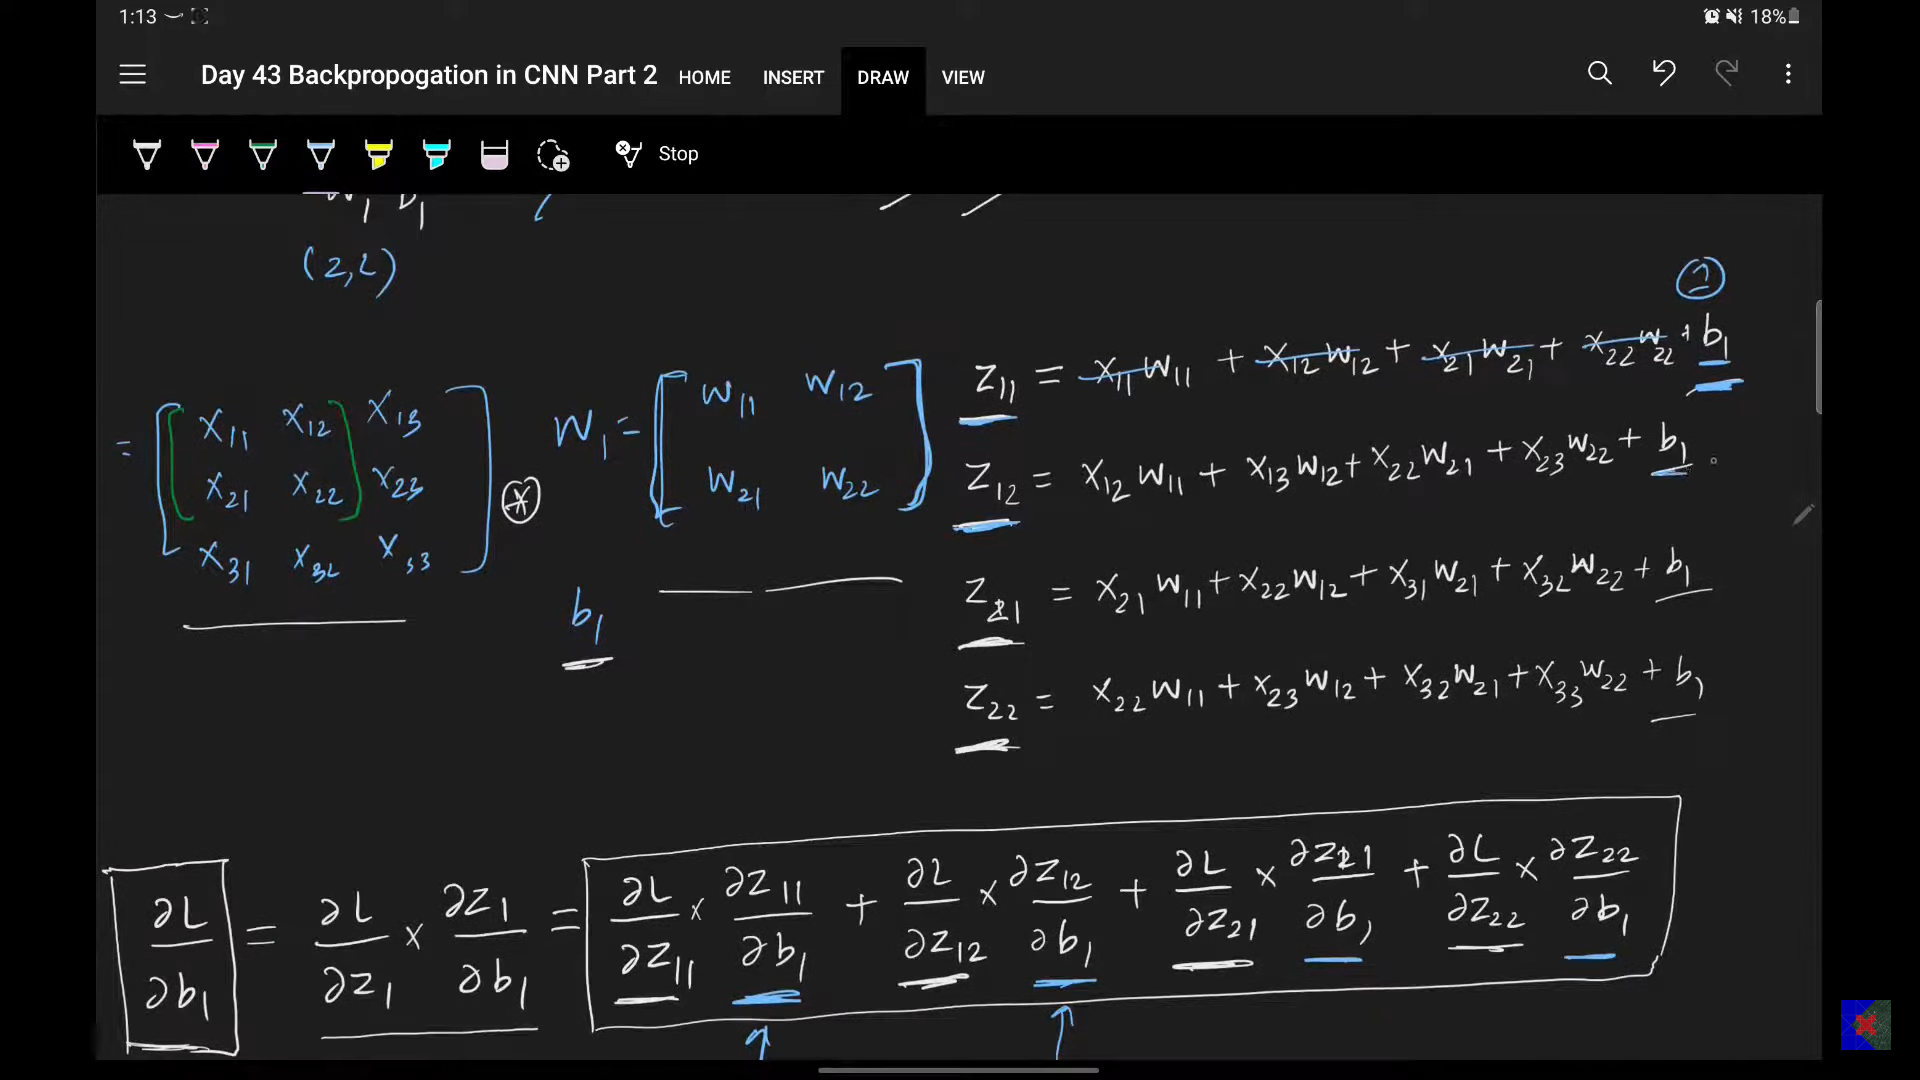 1:13 18%
Day 43 Backpropogation in CNN Part 2 HOME INSERT DRAW VIEW
Stop
W1 b1
(2,2)
1
= [ X11 X12 X13
X21 X22 X23
X31 X32 X33 ] * W1 = [ W11 W12
W21 W22 ]
b1
Z11 = X11 W11 + X12 W12 + X21 W21 + X22 W22 + b1
Z12 = X12 W11 + X13 W12 + X22 W21 + X23 W22 + b1
Z21 = X21 W11 + X22 W12 + X31 W21 + X32 W22 + b1
Z22 = X22 W11 + X23 W12 + X32 W21 + X33 W22 + b1
∂L/∂b1 = ∂L/∂Z1 × ∂Z1/∂b1 = ∂L/∂Z11 × ∂Z11/∂b1 + ∂L/∂Z12 × ∂Z12/∂b1 + ∂L/∂Z21 × ∂Z21/∂b1 + ∂L/∂Z22 × ∂Z22/∂b1